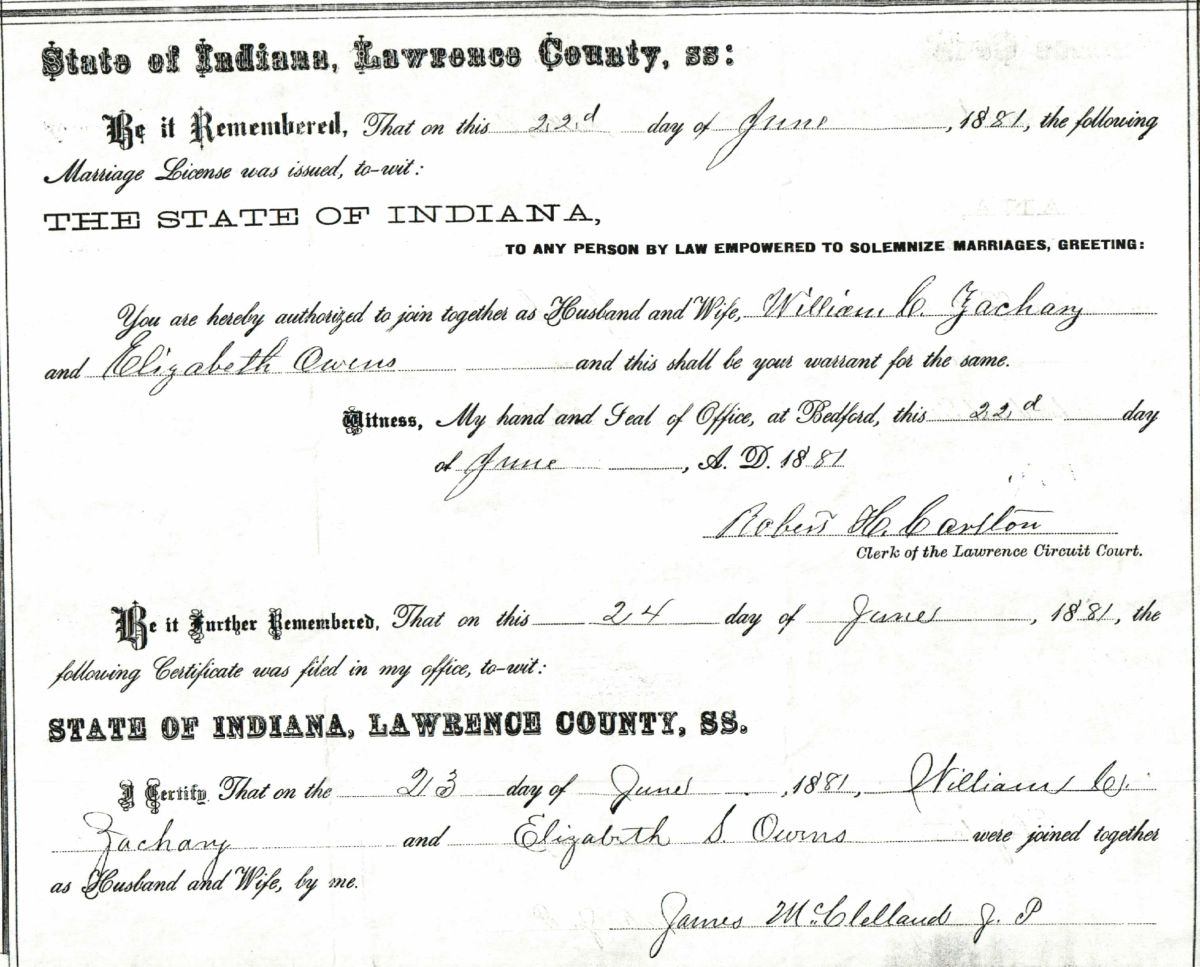 State of Indiana, Lawrence County, ss:
Be it Remembered, That on this 22d day of June, 1881, the following
Marriage License was issued, to-wit:
THE STATE OF INDIANA,
TO ANY PERSON BY LAW EMPOWERED TO SOLEMNIZE MARRIAGES, GREETING:
You are hereby authorized to join together as Husband and Wife, William C. Zachary
and Elizabeth Owens and this shall be your warrant for the same.
Witness, My hand and Seal of Office, at Bedford, this 22d day
of June, A. D. 1881
Robert H. Carlton
Clerk of the Lawrence Circuit Court.
Be it Further Remembered, That on this 24 day of June, 1881, the
following Certificate was filed in my office, to-wit:
STATE OF INDIANA, LAWRENCE COUNTY, SS.
I Certify That on the 23 day of June, 1881, William C.
Zachary and Elizabeth S Owens were joined together
as Husband and Wife, by me.
James McClelland J. P